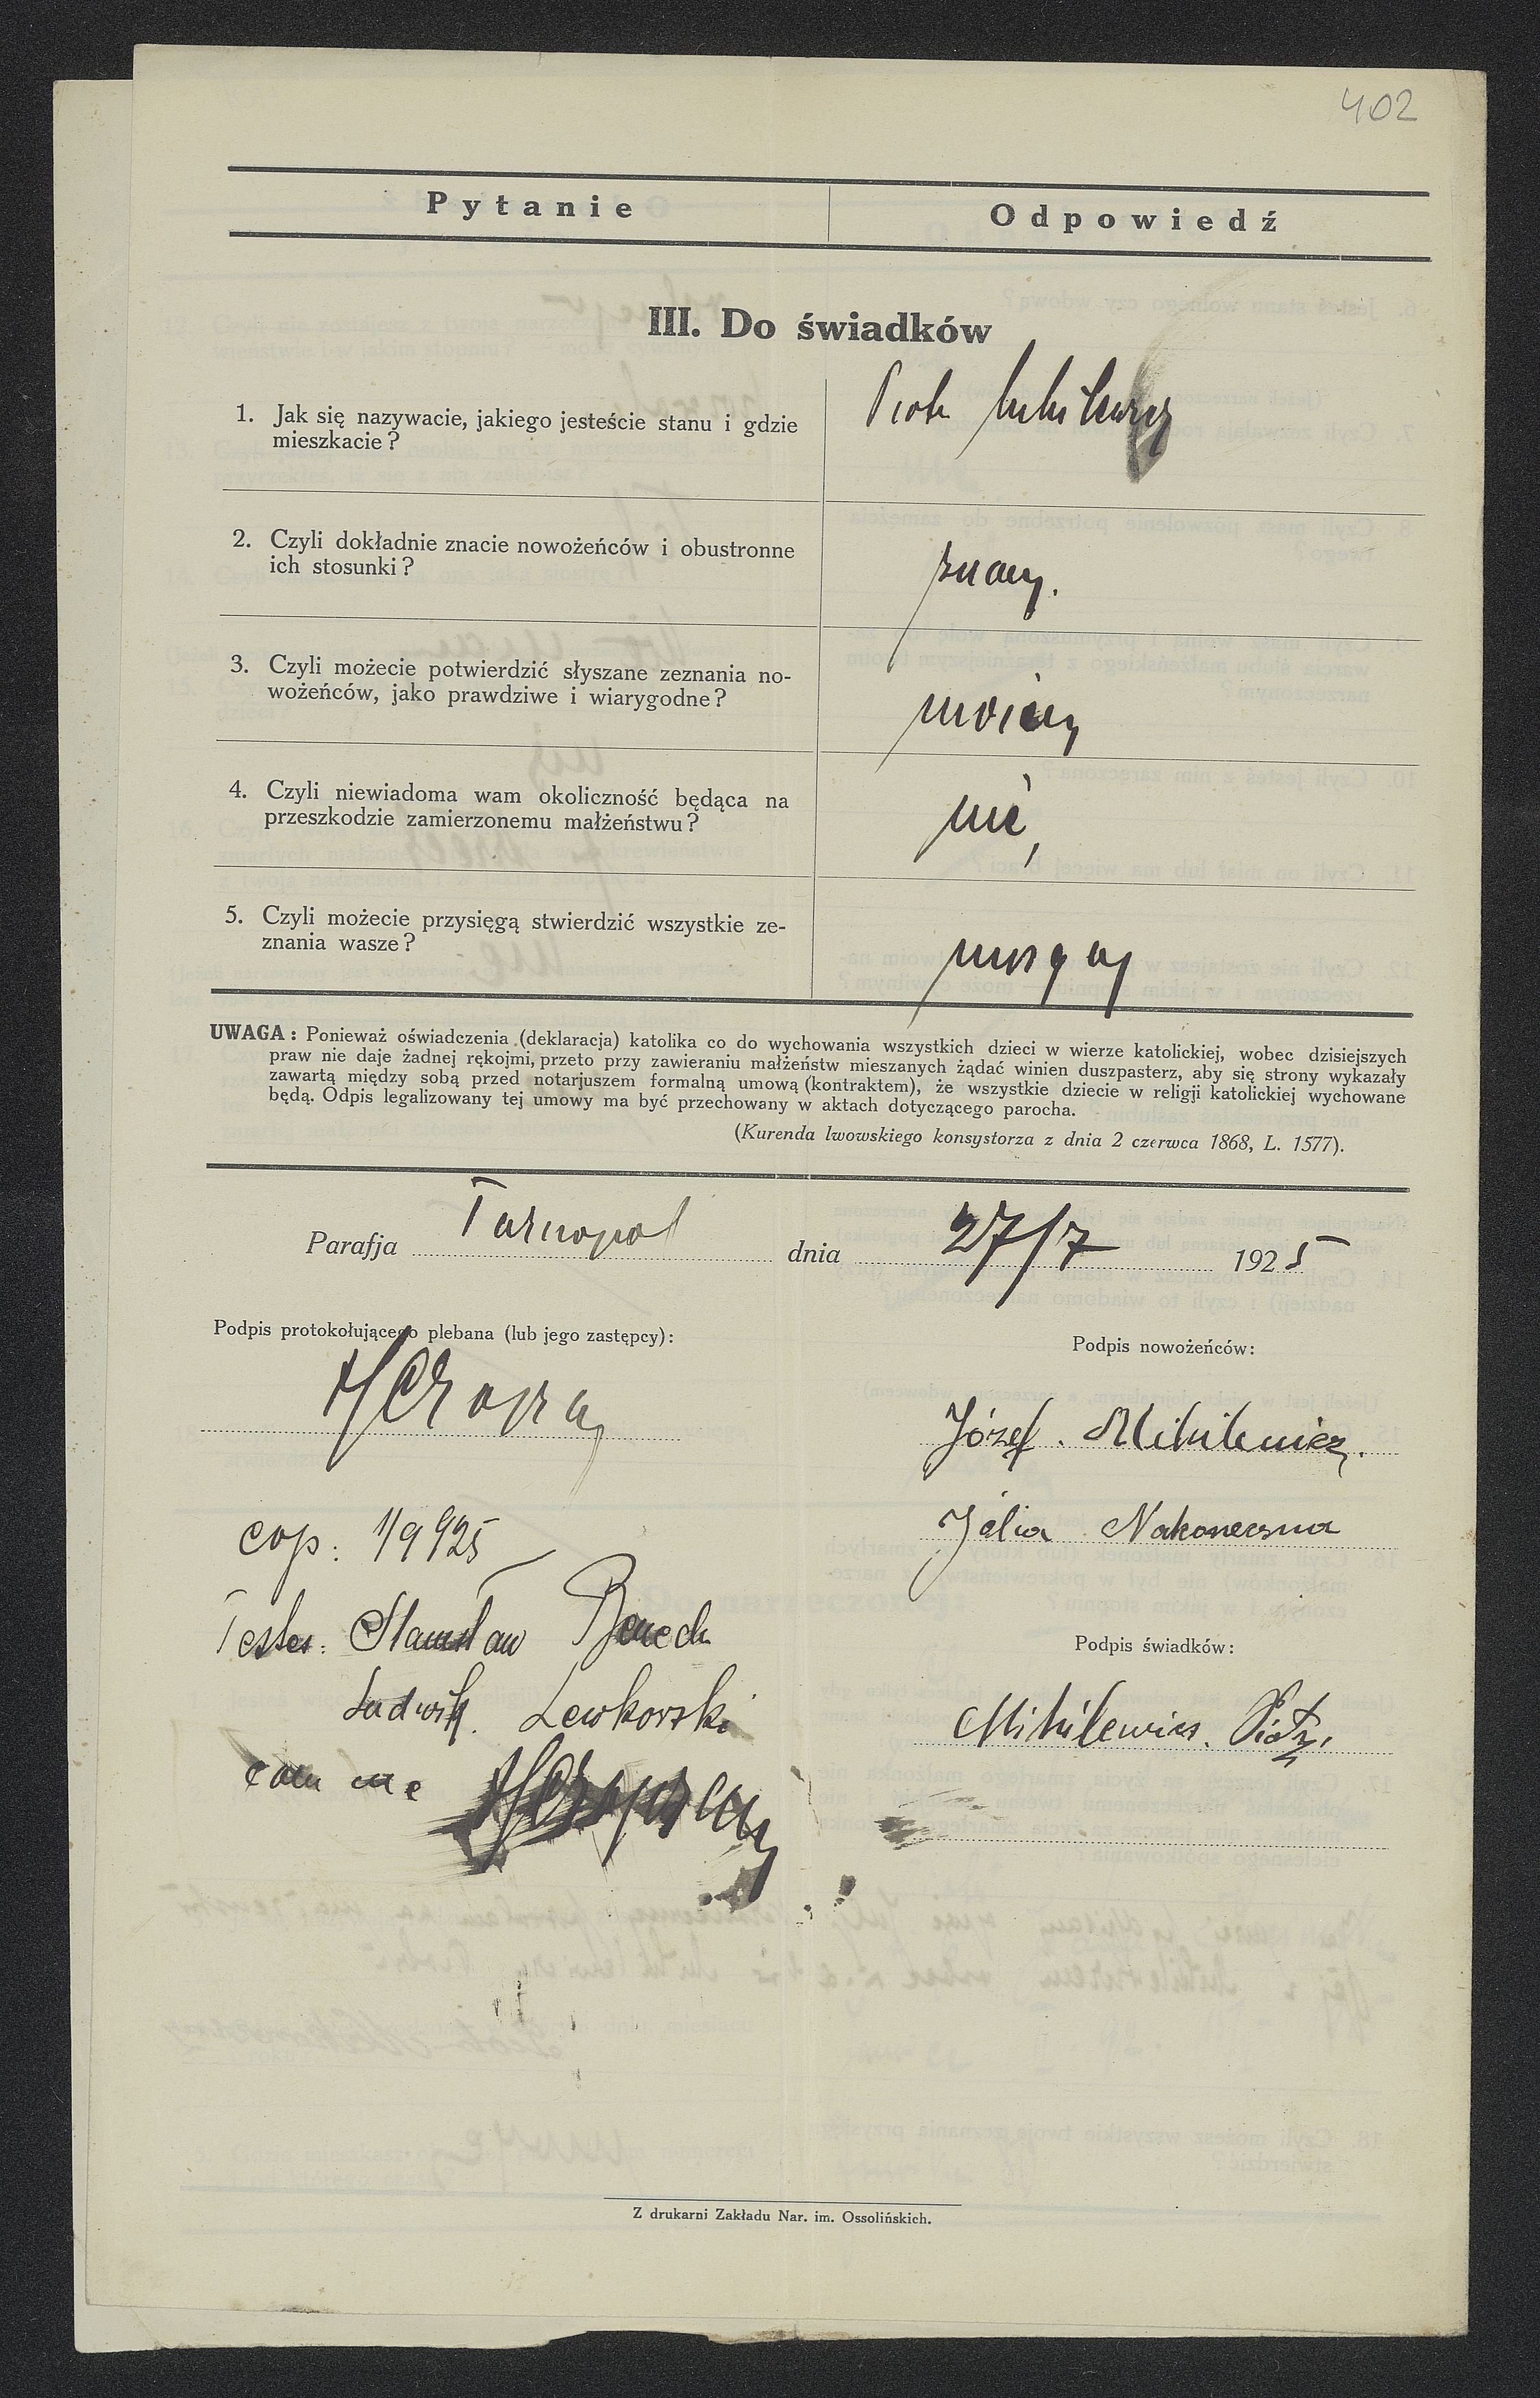 402
Pytanie
Odpowiedź
III. Do świadków
1. Jak się nazywacie, jakiego jesteście stanu i gdzie
mieszkacie?
Piotr Mihilewicz
2. Czyli dokładnie znacie nowożeńców i obustronne
ich stosunki?
znamy.
3. Czyli możecie potwierdzić słyszane zeznania no-
wożeńców, jako prawdziwe i wiarygodne?
możemy
4. Czyli niewiadoma wam okoliczność będąca na
przeszkodzie zamierzonemu małżeństwu?
nie,
5. Czyli możecie przysięgą stwierdzić wszystkie ze-
znania wasze?
UWAGA: Ponieważ oświadczenia (deklaracja) katolika co do wychowania wszystkich dzieci w wierze katolickiej, wobec dzisiejszych
praw nie daje żadnej rękojmi, przeto przy zawieraniu małżeństw mieszanych żądać winien duszpasterz, aby się strony wykazały
zawartą między sobą przed notarjuszem formalną umową (kontraktem), że wszystkie dziecie w religji katolickiej wychowane
będą. Odpis legalizowany tej umowy ma być przechowany w aktach dotyczącego parocha.
(Kurenda lwowskiego konsystorza z dnia 2 czerwca 1868, L. 1577).
Parafja Tarnopol dnia 27/7 1925
Podpis protokołującego plebana (lub jego zastępcy):
Podpis nowożeńców:
Józef. Mihilewicz.
cop: 1/9 925
Julia Nakoneczna
Testes: Stanisław Benech
Podpis świadków:
Ludwik Lewkowski
Mihilewicz. Piotr.
coram me
Z drukarni Zakładu Nar. im. Ossolińskich.